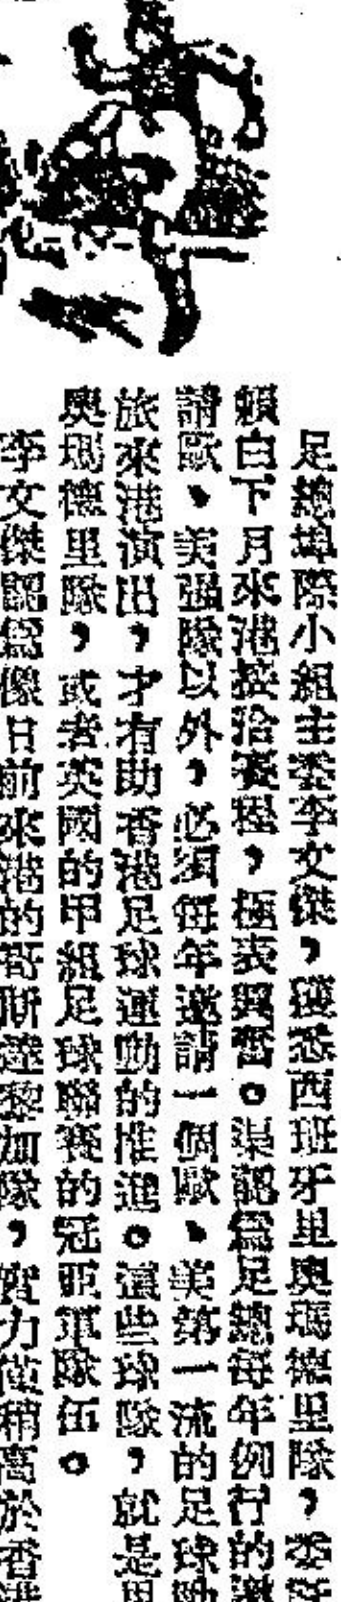 足總埠際小組主委李文傑，獲悉西班牙里奧瑪德里隊，委託
賴白下月來港接洽賽程，極表興奮。渠認為足總每年例行的邀
請歐、美强隊以外，必須每年邀請一個歐、美第一流的足球勁
旅來港演出，才有助香港足球運動的推進。這些球隊，就是里
奧瑪德里隊，或者英國的甲組足球聯賽的冠亞軍隊伍。
李文傑認為像日前來港的哥斯達黎加隊，實力僅稍高於香港